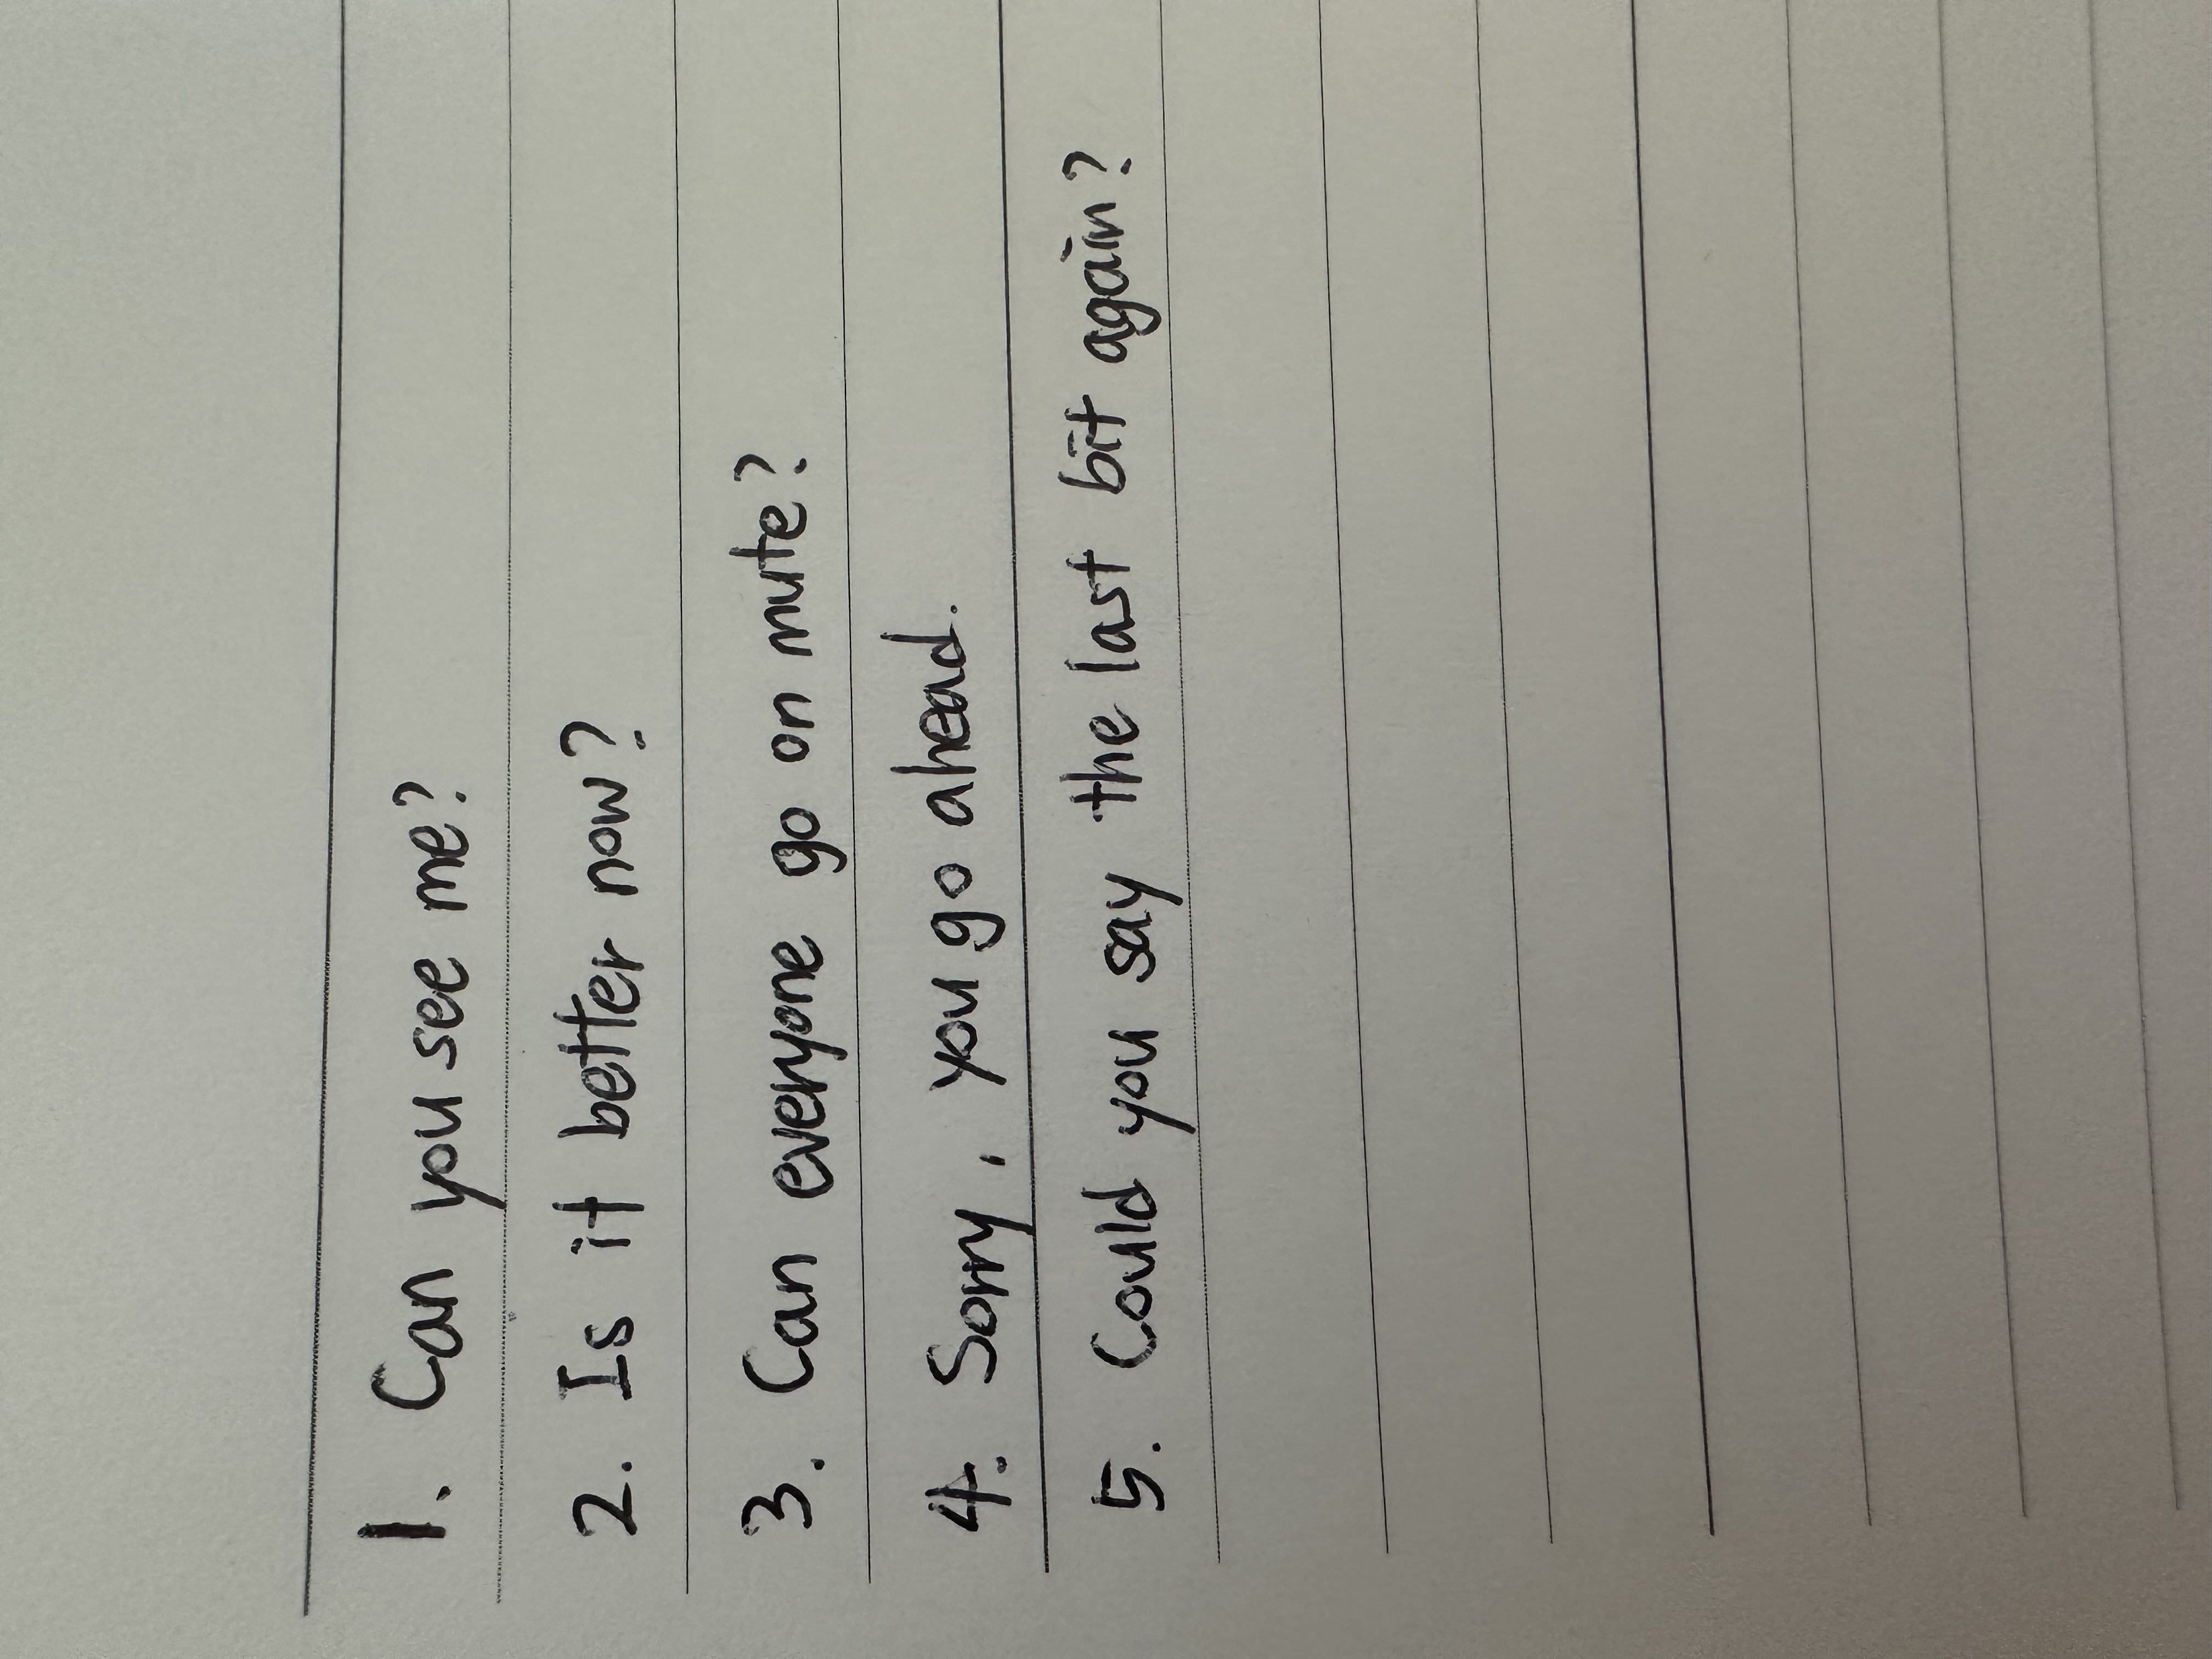 1. Can you see me?
2. Is it better now?
3. Can everyone go on mute?
4. Sorry, you go ahead.
5. Could you say the last bit again?